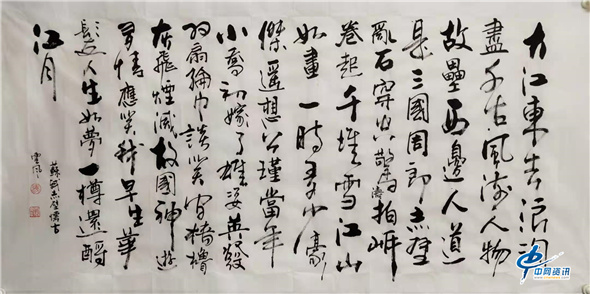 大江東去浪淘
盡千古風流人物
故壘西邊人道
是三國周郎赤壁
亂石穿空驚濤拍岸
卷起千堆雪江山
如畫一時多少豪
傑遙想公瑾當年
小喬初嫁了雄姿英發
羽扇綸巾談笑間檣櫓
灰飛煙滅故國神遊
多情應笑我早生華
髮人生如夢一樽還酹
江月
蘇軾赤壁懷古
中网资讯